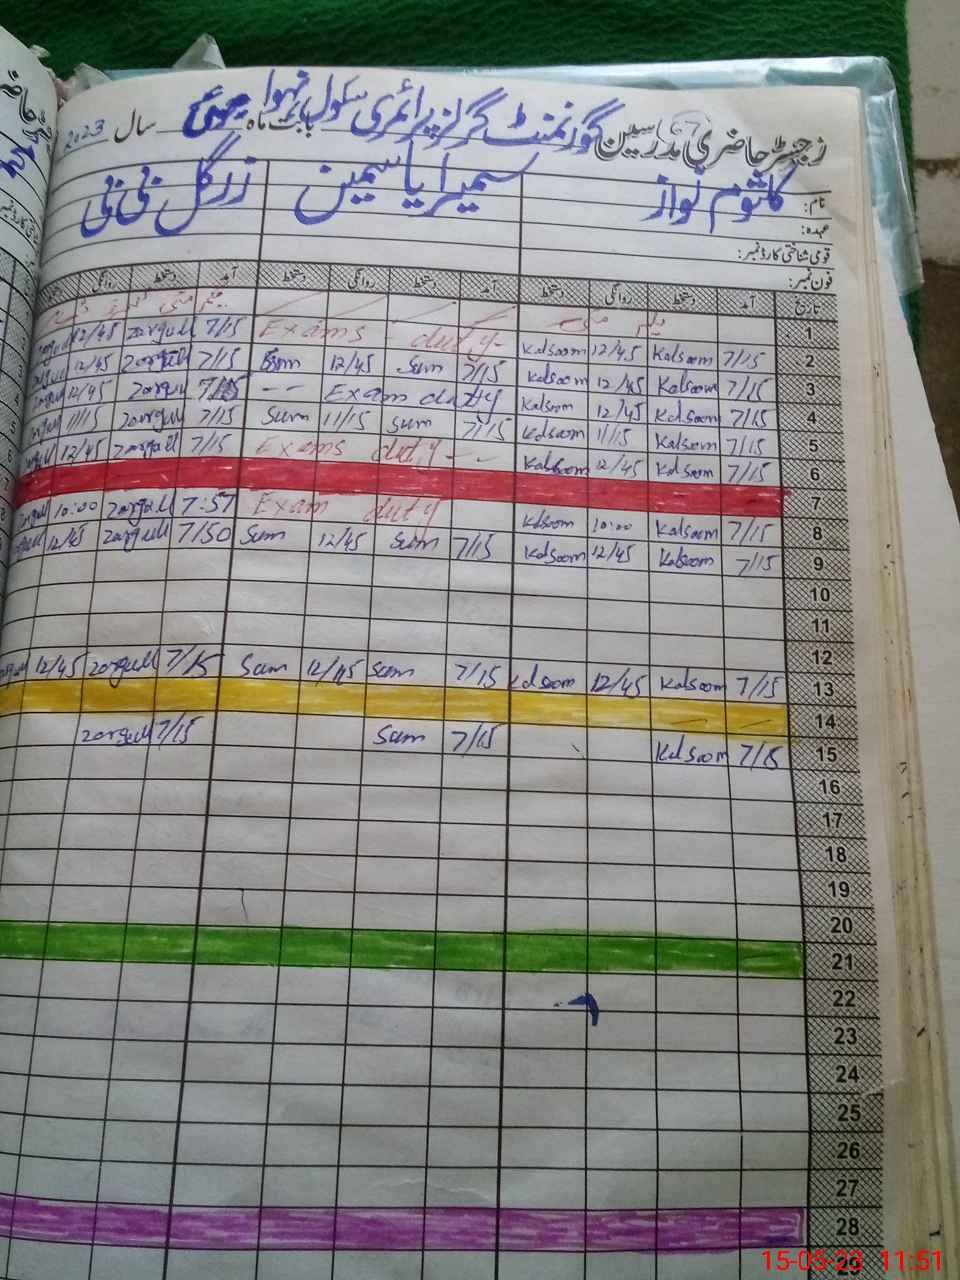 رجسٹر حاضری مدرسین گورنمنٹ گرلز پرائمری سکول نہوا بابت ماہ مئی سال 2023
نام: کلثوم نواز سمیرا یاسمین زرگل بی بی
عہدہ:
قومی شناختی کارڈ نمبر:
فون نمبر:
تاریخ آمد دستخط روانگی دستخط آمد دستخط روانگی دستخط آمد دستخط روانگی دستخط
1 یکم مئی
2 7/15 Kalsoom 12/45 Kalsoom Exams duty 7/15 zargull 12/45
3 7/15 Kalsoom 12/45 Kalsoom 7/15 Sum 12/45 Sum 7/15 zargull 12/45
4 7/15 Kalsoom 12/45 Kalsoom Exam duty 7/15 zargull 12/45
5 7/15 Kalsoom 11/15 Kalsoom 7/15 Sum 11/15 Sum 7/15 zargull 11/15
6 7/15 Kalsoom 12/45 Kalsoom Exams duty 7/15 zargull 12/45
7
8 7/15 Kalsoom 10:00 Kalsoom Exam duty 7:57 zargull 10:00
9 7/15 Kalsoom 12/45 Kalsoom 7/15 Sum 12/45 Sum 7/50 zargull 12/45
10
11
12
13 7/15 Kalsoom 12/45 Kalsoom 7/15 Sum 12/45 Sum 7/15 zargull 12/45
14
15 7/15 Kalsoom 7/15 Sum 7/15 zargull
16
17
18
19
20
21
22
23
24
25
26
27
28
29
15-05-23 11:51